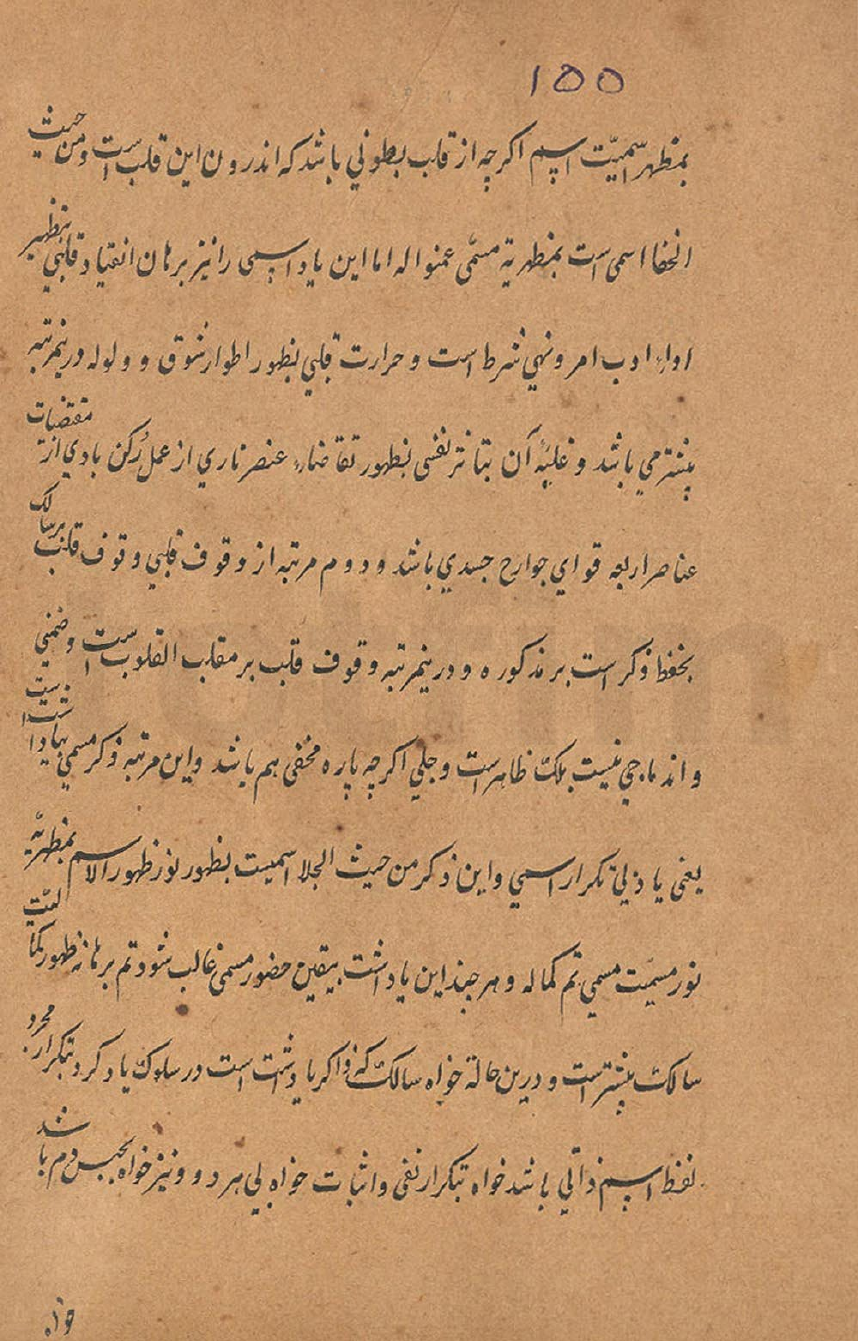 ۱۵۵
بمظهر اسمیّت اسم اکرچه از قلب بطونی باشد که اندرون این قلب است و من حیث
الخفا اسمی است بمظهریة مسمّی عمنواله اما این یاد اسمی را نیز برهان انقیاد قلبی بتظهیر
اداء ادب امر و نهی شرط است و حرارت قلبی بظهور اطوار شوق و ولوله درینمرتبه
بیشتر می باشد و غلبهٔ آن بتاثر نفسی بظهور تقاضاء عنصر ناری از عمل رُکن بادی از مقتضات
عناصر اربعه قوای جوارح جسدی باشد و دوم مرتبه از وقوف قلبی وقوف قلب سالک
بحفظ ذکر است بر مذکوره و درینمرتبه وقوف قلب بر مقلب القلوب است و ضمنی
و اندماجی نیست بلک ظاهر است و جلی اکرچه پاره مخفی هم باشد و این مرتبه ذکر مسمی بیادداشت است
یعنی یاد دلی تکرار اسمی و این ذکر من حیث الجلا اسمیت بظهور نور ظهور الاسم بمظهریّه
نور مسمیّت مسمی تم کماله و هر چند این یادداشت بیقین حضور مسمی غالب شود تم برهانه ظهور
سالک بیشتر است و درین حالة خواه سالک که ذاکر یادداشت است در سلوک یاد کرد بتکرار مجرد
لفظ اسم ذاتی باشد خواه بتکرار نفی و اثبات خواه بی هر دو و نیز خواه بحبس دم باشد